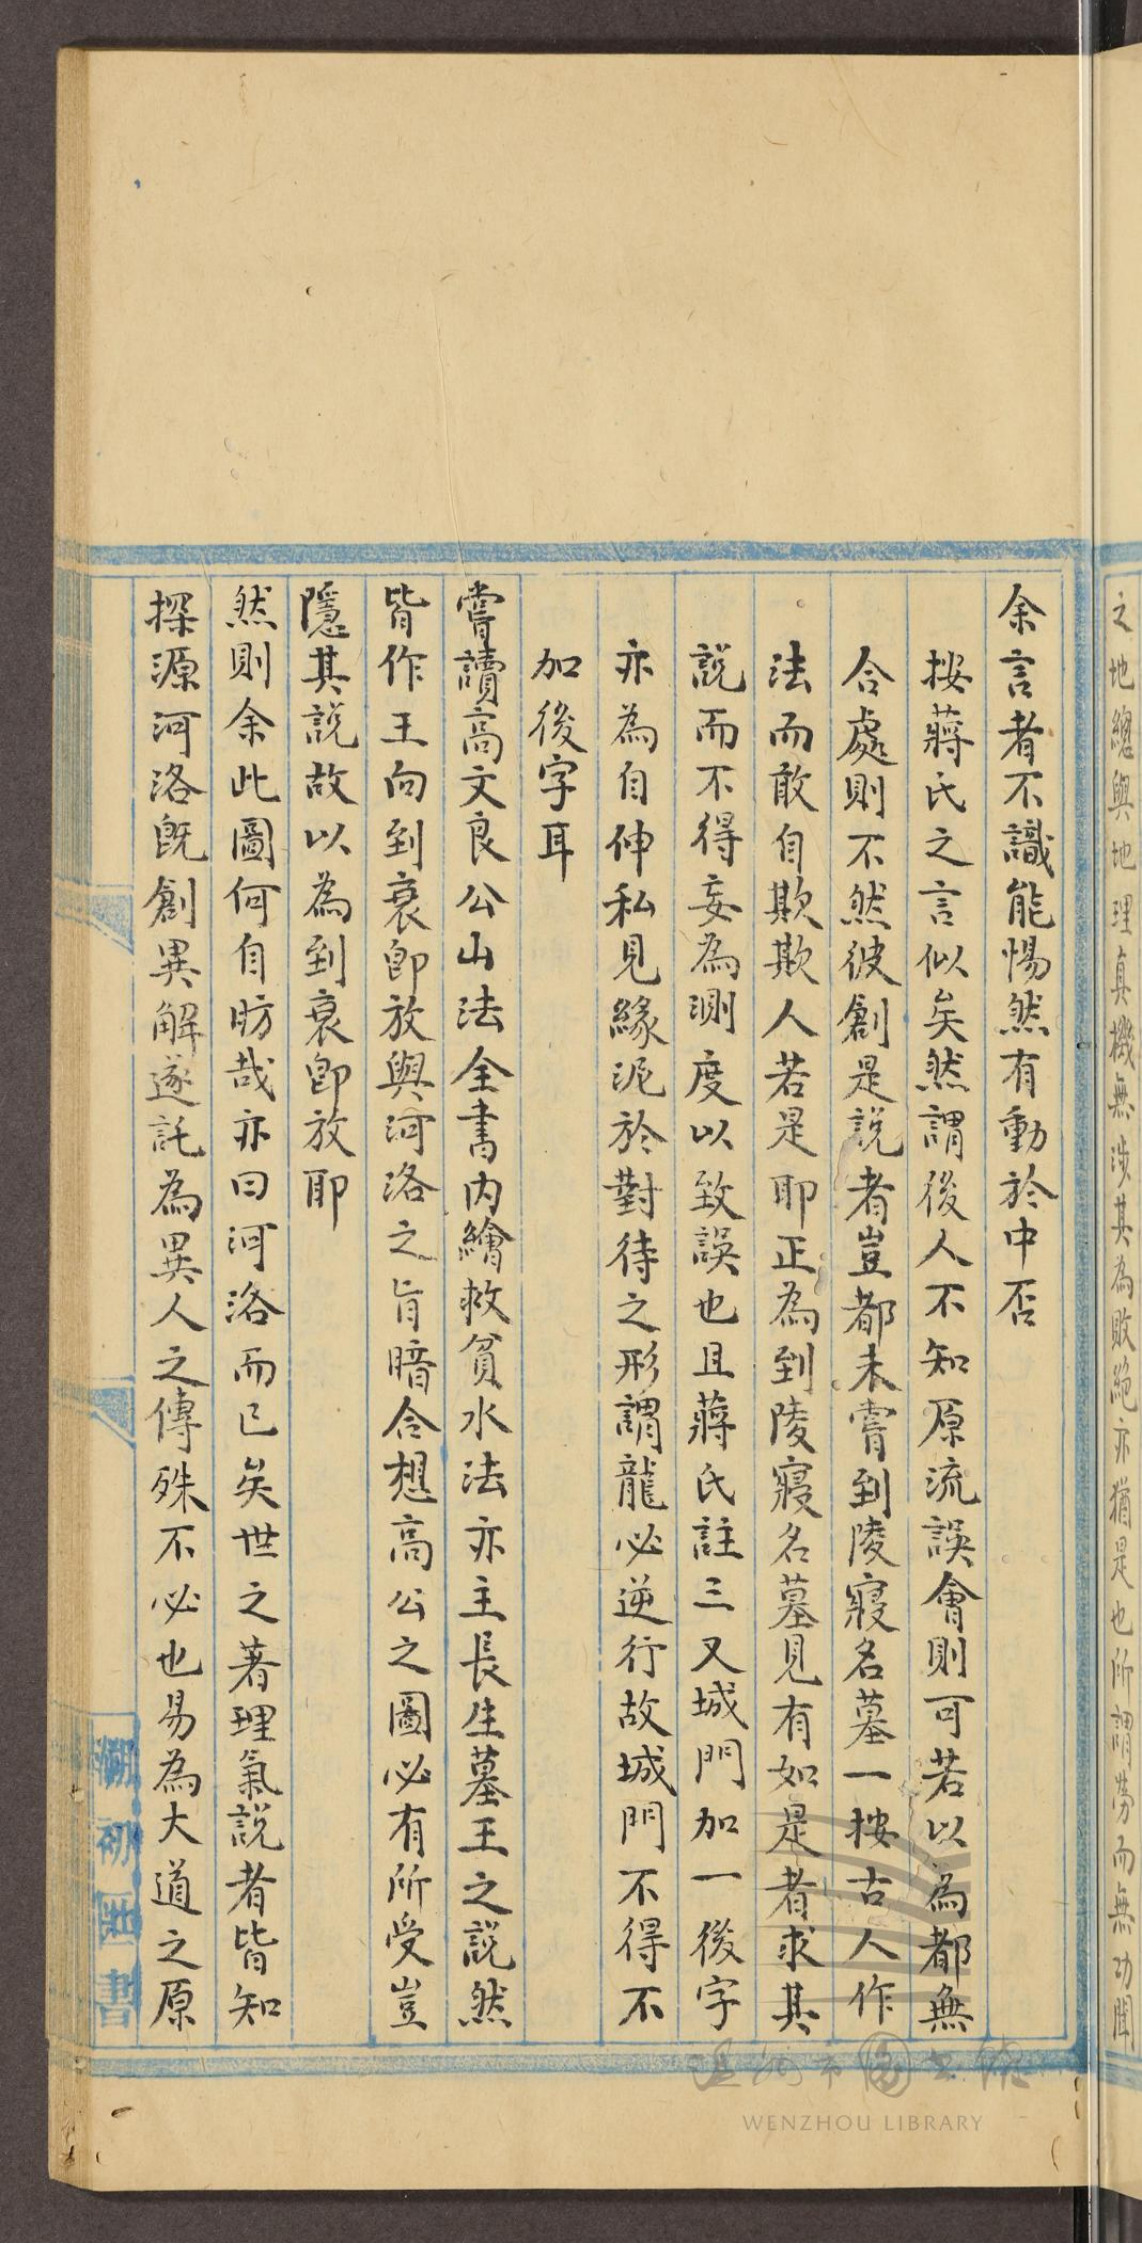 之地總與地理真機無涉其為敗絕亦猶是也所謂勞而無功聞
余言者不識能惕然有動於中否
按蔣氏之言似矣然謂後人不知原流誤會則可若以為都無
合處則不然彼創是說者豈都未嘗到陵寢名墓一按古人作
法而敢自欺欺人若是耶正為到陵寢名墓見有如是者求其
說而不得妄為測度以致誤也且蔣氏註三叉城門加一後字
亦為自伸私見緣泥於對待之形謂龍必逆行故城門不得不
加後字耳
嘗讀高文良公山法全書內繪救貧水法亦主長生墓王之說然
皆作王向到衰卽放與河洛之旨暗合想高公之圖必有所受豈
隱其說故以為到衰卽放耶
然則余此圖何自昉哉亦曰河洛而已矣世之著理氣說者皆知
探源河洛旣創異解遂託為異人之傳殊不必也易為大道之原
瀫初匪書
溫州市圖書館
WENZHOU LIBRARY